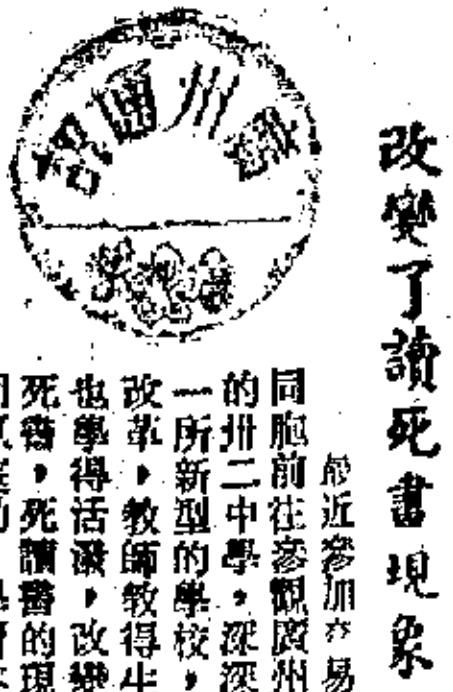 改變了讀死書現象
州
最近參加交易
同胞前往參觀廣州
的卅二中學，深深
一所新型的學校，
改革，教師教得生
也學得活潑，改變
死書，死讀書的現